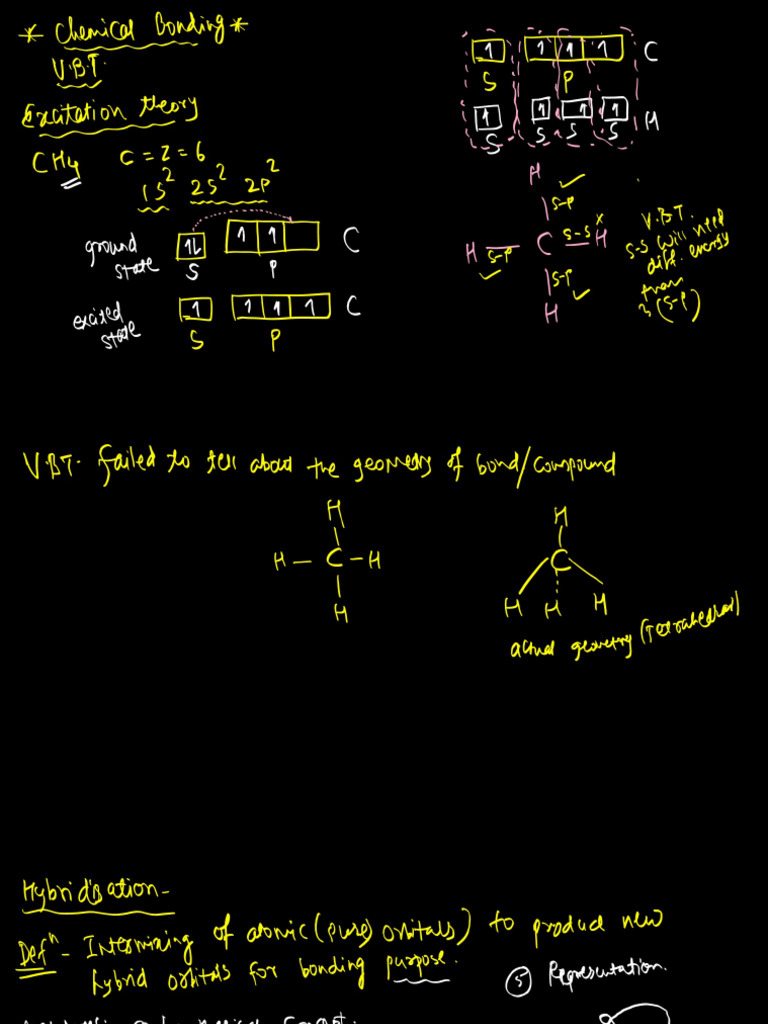 * Chemical Bonding *
V.B.T.
Excitation theory
CH4 C = Z = 6
1s² 2s² 2p²
ground state
1L 1 1 C
S P
excited state
1 1 1 1 C
S P
1 1 1 1 C
S P
1 1 1 1 H
S S S S
H
S-P
H S-P C S-S x H
S-P
H
V.B.T.
S-S will need
diff. energy
than
3(S-P)
V.B.T. failed to tell about the geometry of bond/compound
H
H - C - H
H
H
C
H H H
actual geometry (Tetrahedral)
Hybridisation -
Defⁿ - Intermixing of atomic (pure) orbitals) to produce new
hybrid orbitals for bonding purpose.
⑤ Representation.